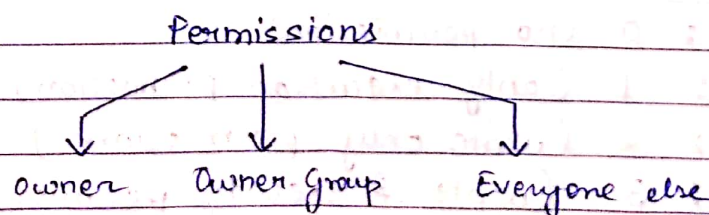 Permissions
Owner Owner Group Everyone else